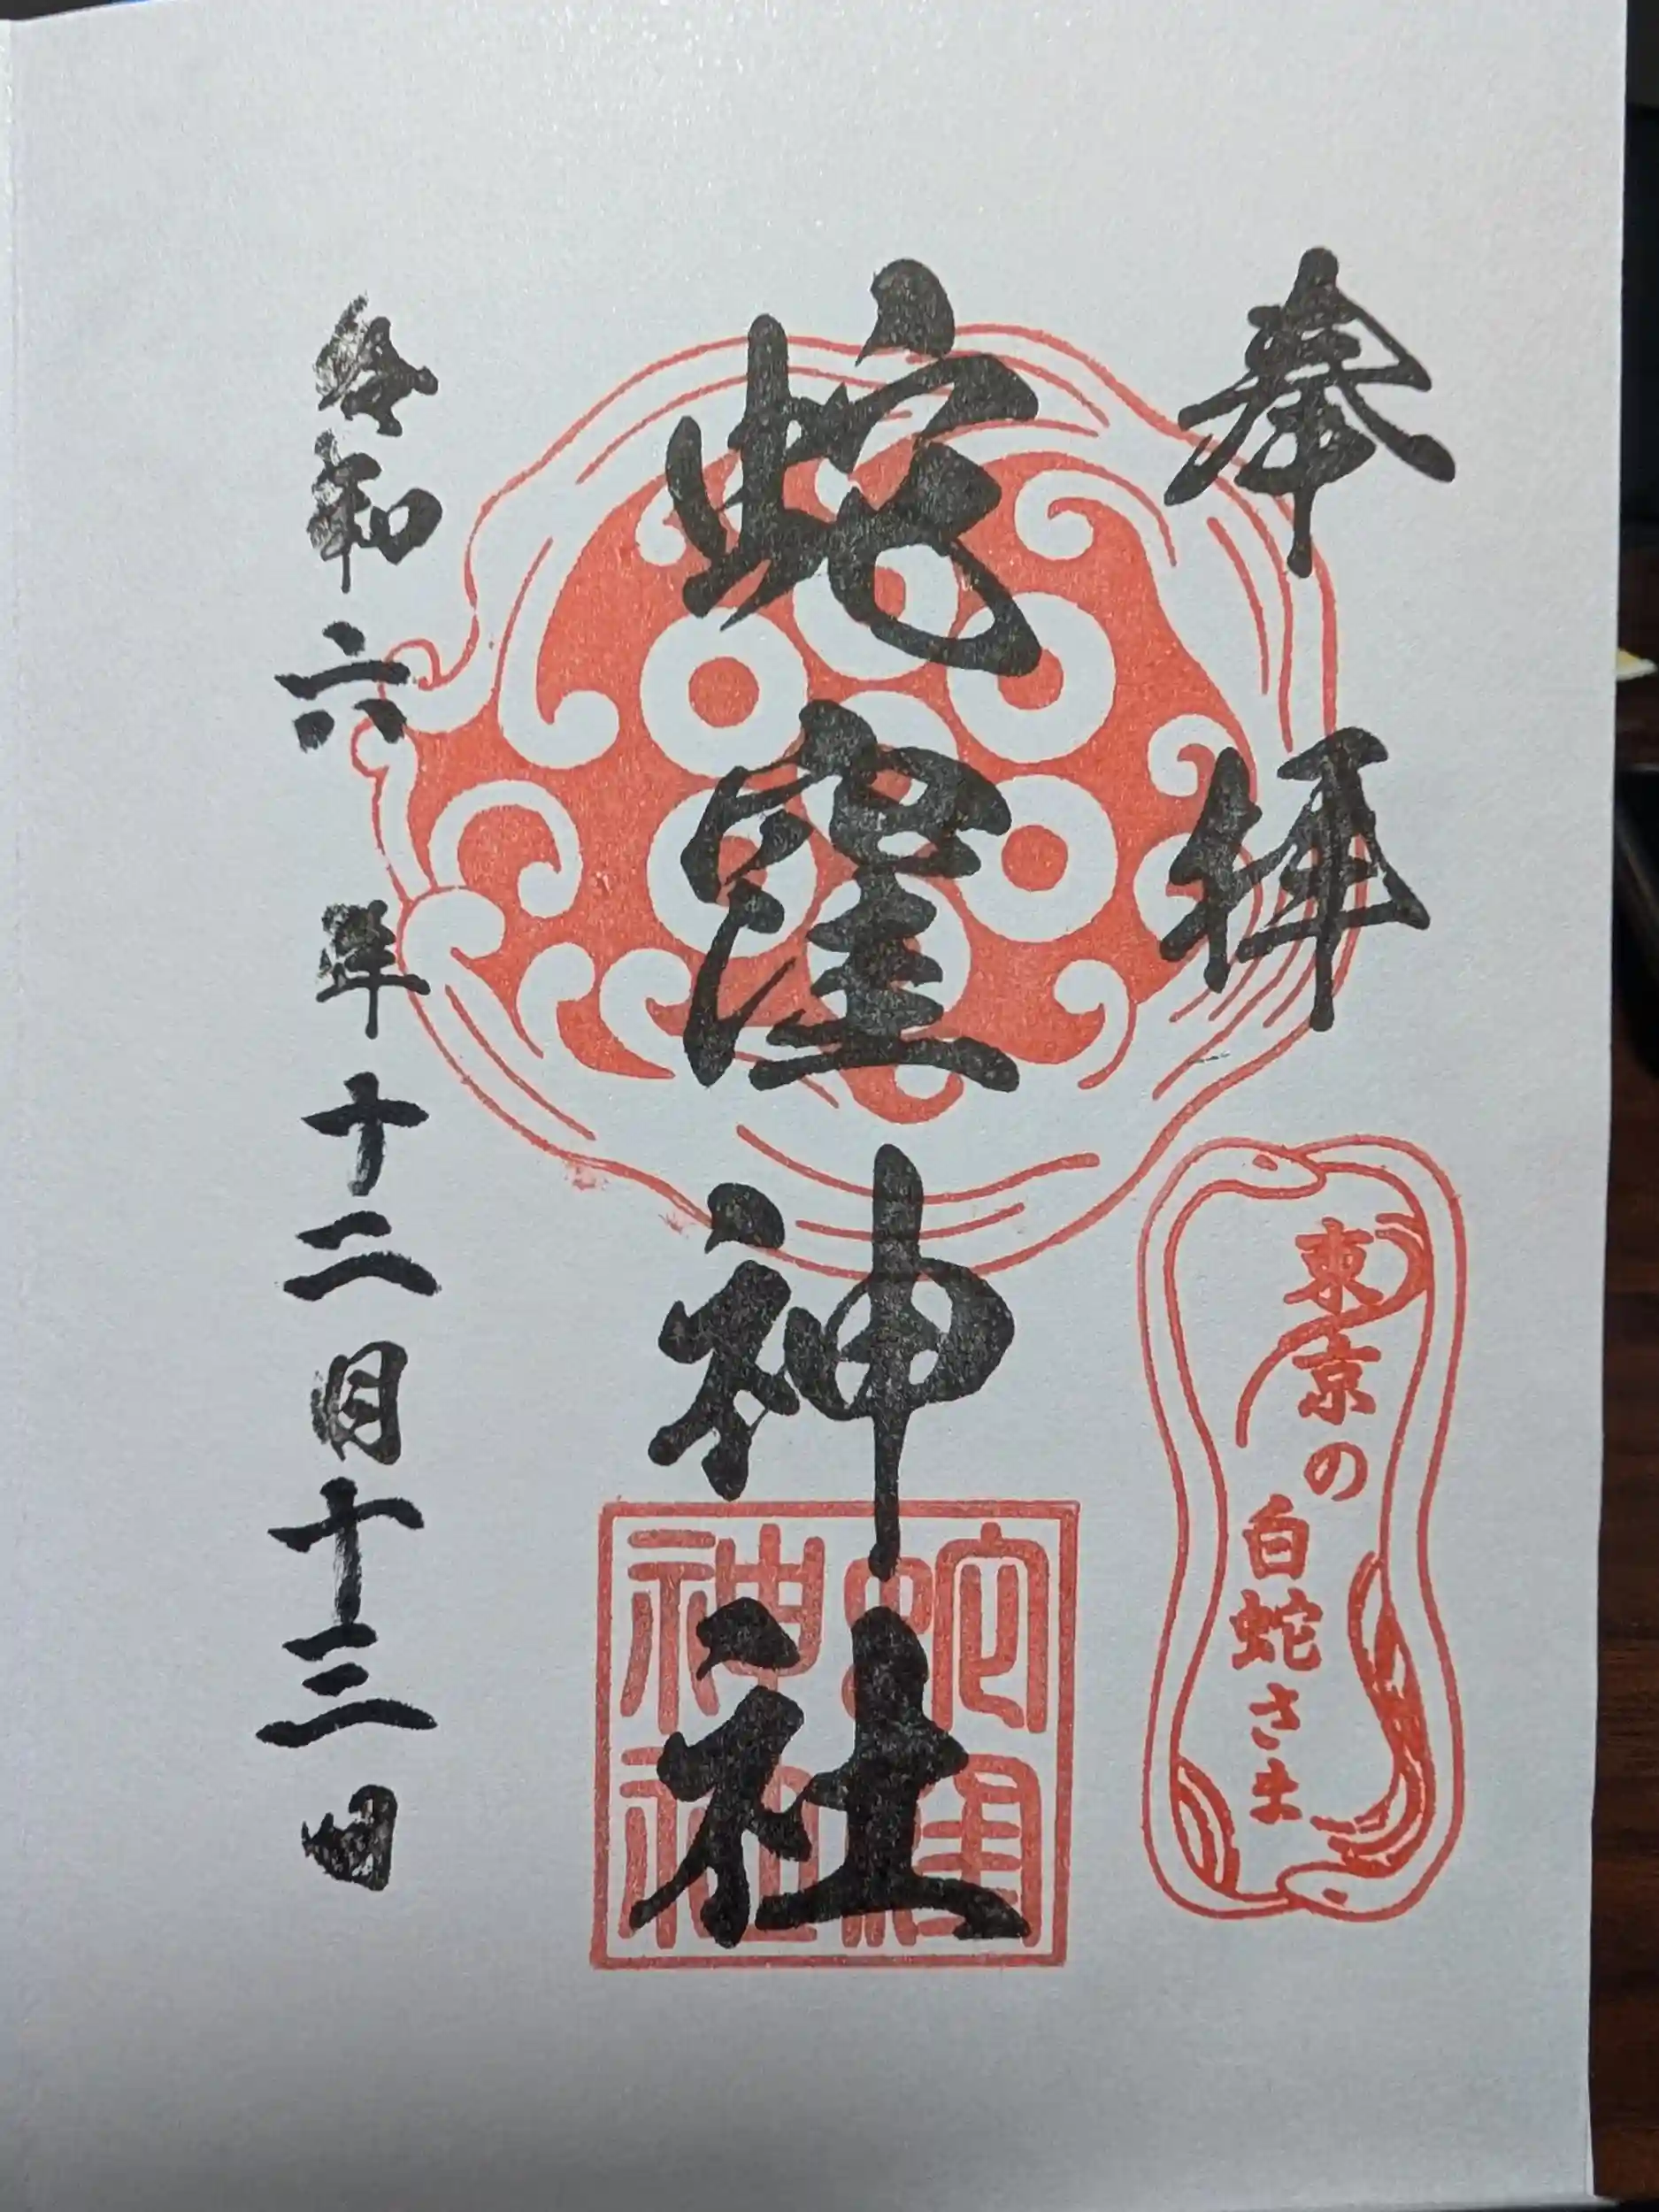 奉拝
東京の
白蛇さま
蛇窪神社
蛇窪
神社
令和六年十二月十三日